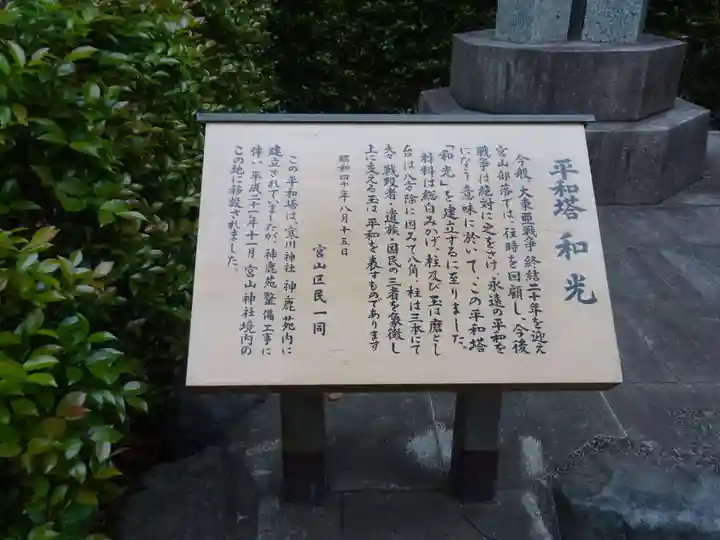 平和塔 和光
今般、大東亜戦争終結二十年を迎え
宮山部落では、往時を回顧し、今後
戦争は絶対に之をさけ、永遠の平和を
になう意味に於いて、この平和塔
「和光」を建立するに至りました。
材料は総白みかげ、柱及び玉は磨とし
台は八方除に因みて八角、柱は三本にて
夫々戦歿者、遺族、国民の三者を象徴し
上に支える玉は平和を表すものであります
昭和四十年八月十五日
宮山区民一同
この平和塔は、寒川神社神鹿苑内に
建立されていましたが、神鹿苑整備工事に
伴い平成二十一年十一月宮山神社境内の
この地に移設されました。